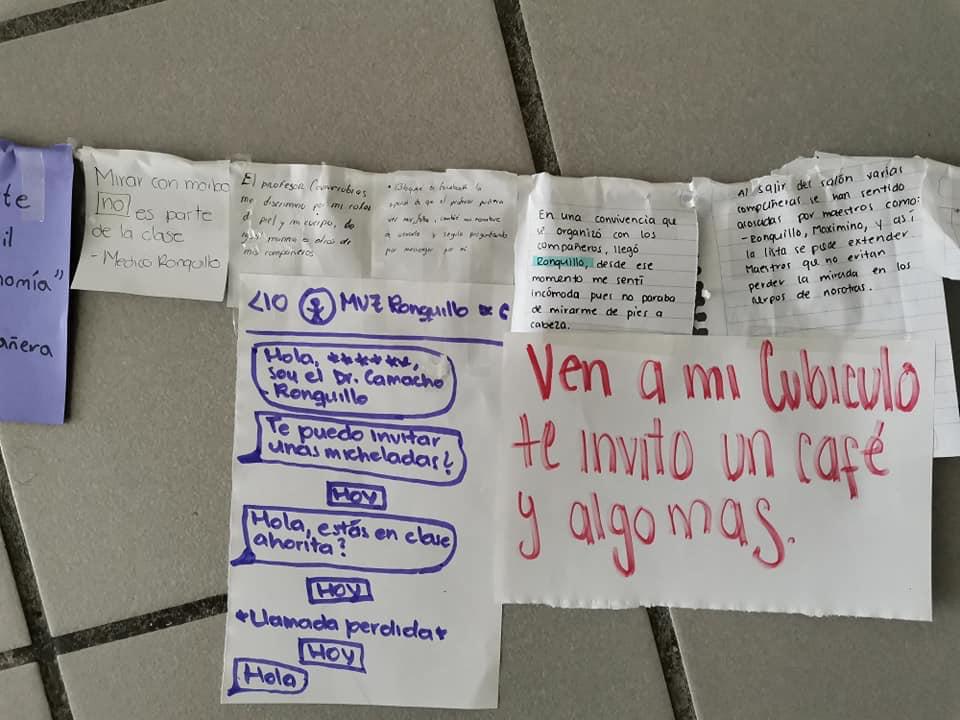 te
il
nomía"
añera
Mirar con morbo
no es parte
de la clase
- Médico Ronquillo
El profesor Covarrubias
me discrimino por mi color
de piel y mi cuerpo, de
igual manera a otros de
mis compañeros
• Bloque o facebook
de que el profesor
ver mis fotos, cambié mi nombre
de usuario y seguía preguntando
por mensajes por mi
En una convivencia que
se organizó con los
compañeros, llegó
Ronquillo, desde ese
momento me sentí
incómoda pues no paraba
de mirarme de pies a
cabeza.
Al salir del salón varias
compañeras se han sentido
acosadas por maestros como:
- Ronquillo, Maximino, y así
la lista se puede extender.
Maestros que no evitan
perder la mirada en los
cuerpos de nosotras.
<10 MVZ Ronquillo
Hola, ******,
sou el Dr. Camacho
Ronquillo
Te puedo invitar
unas micheladas?
Hoy
Hola, estás en clase
ahorita?
Hoy
*Llamada perdida*
Hoy
Hola
Ven a mi Cubiculo
te invito un café
y algo mas.